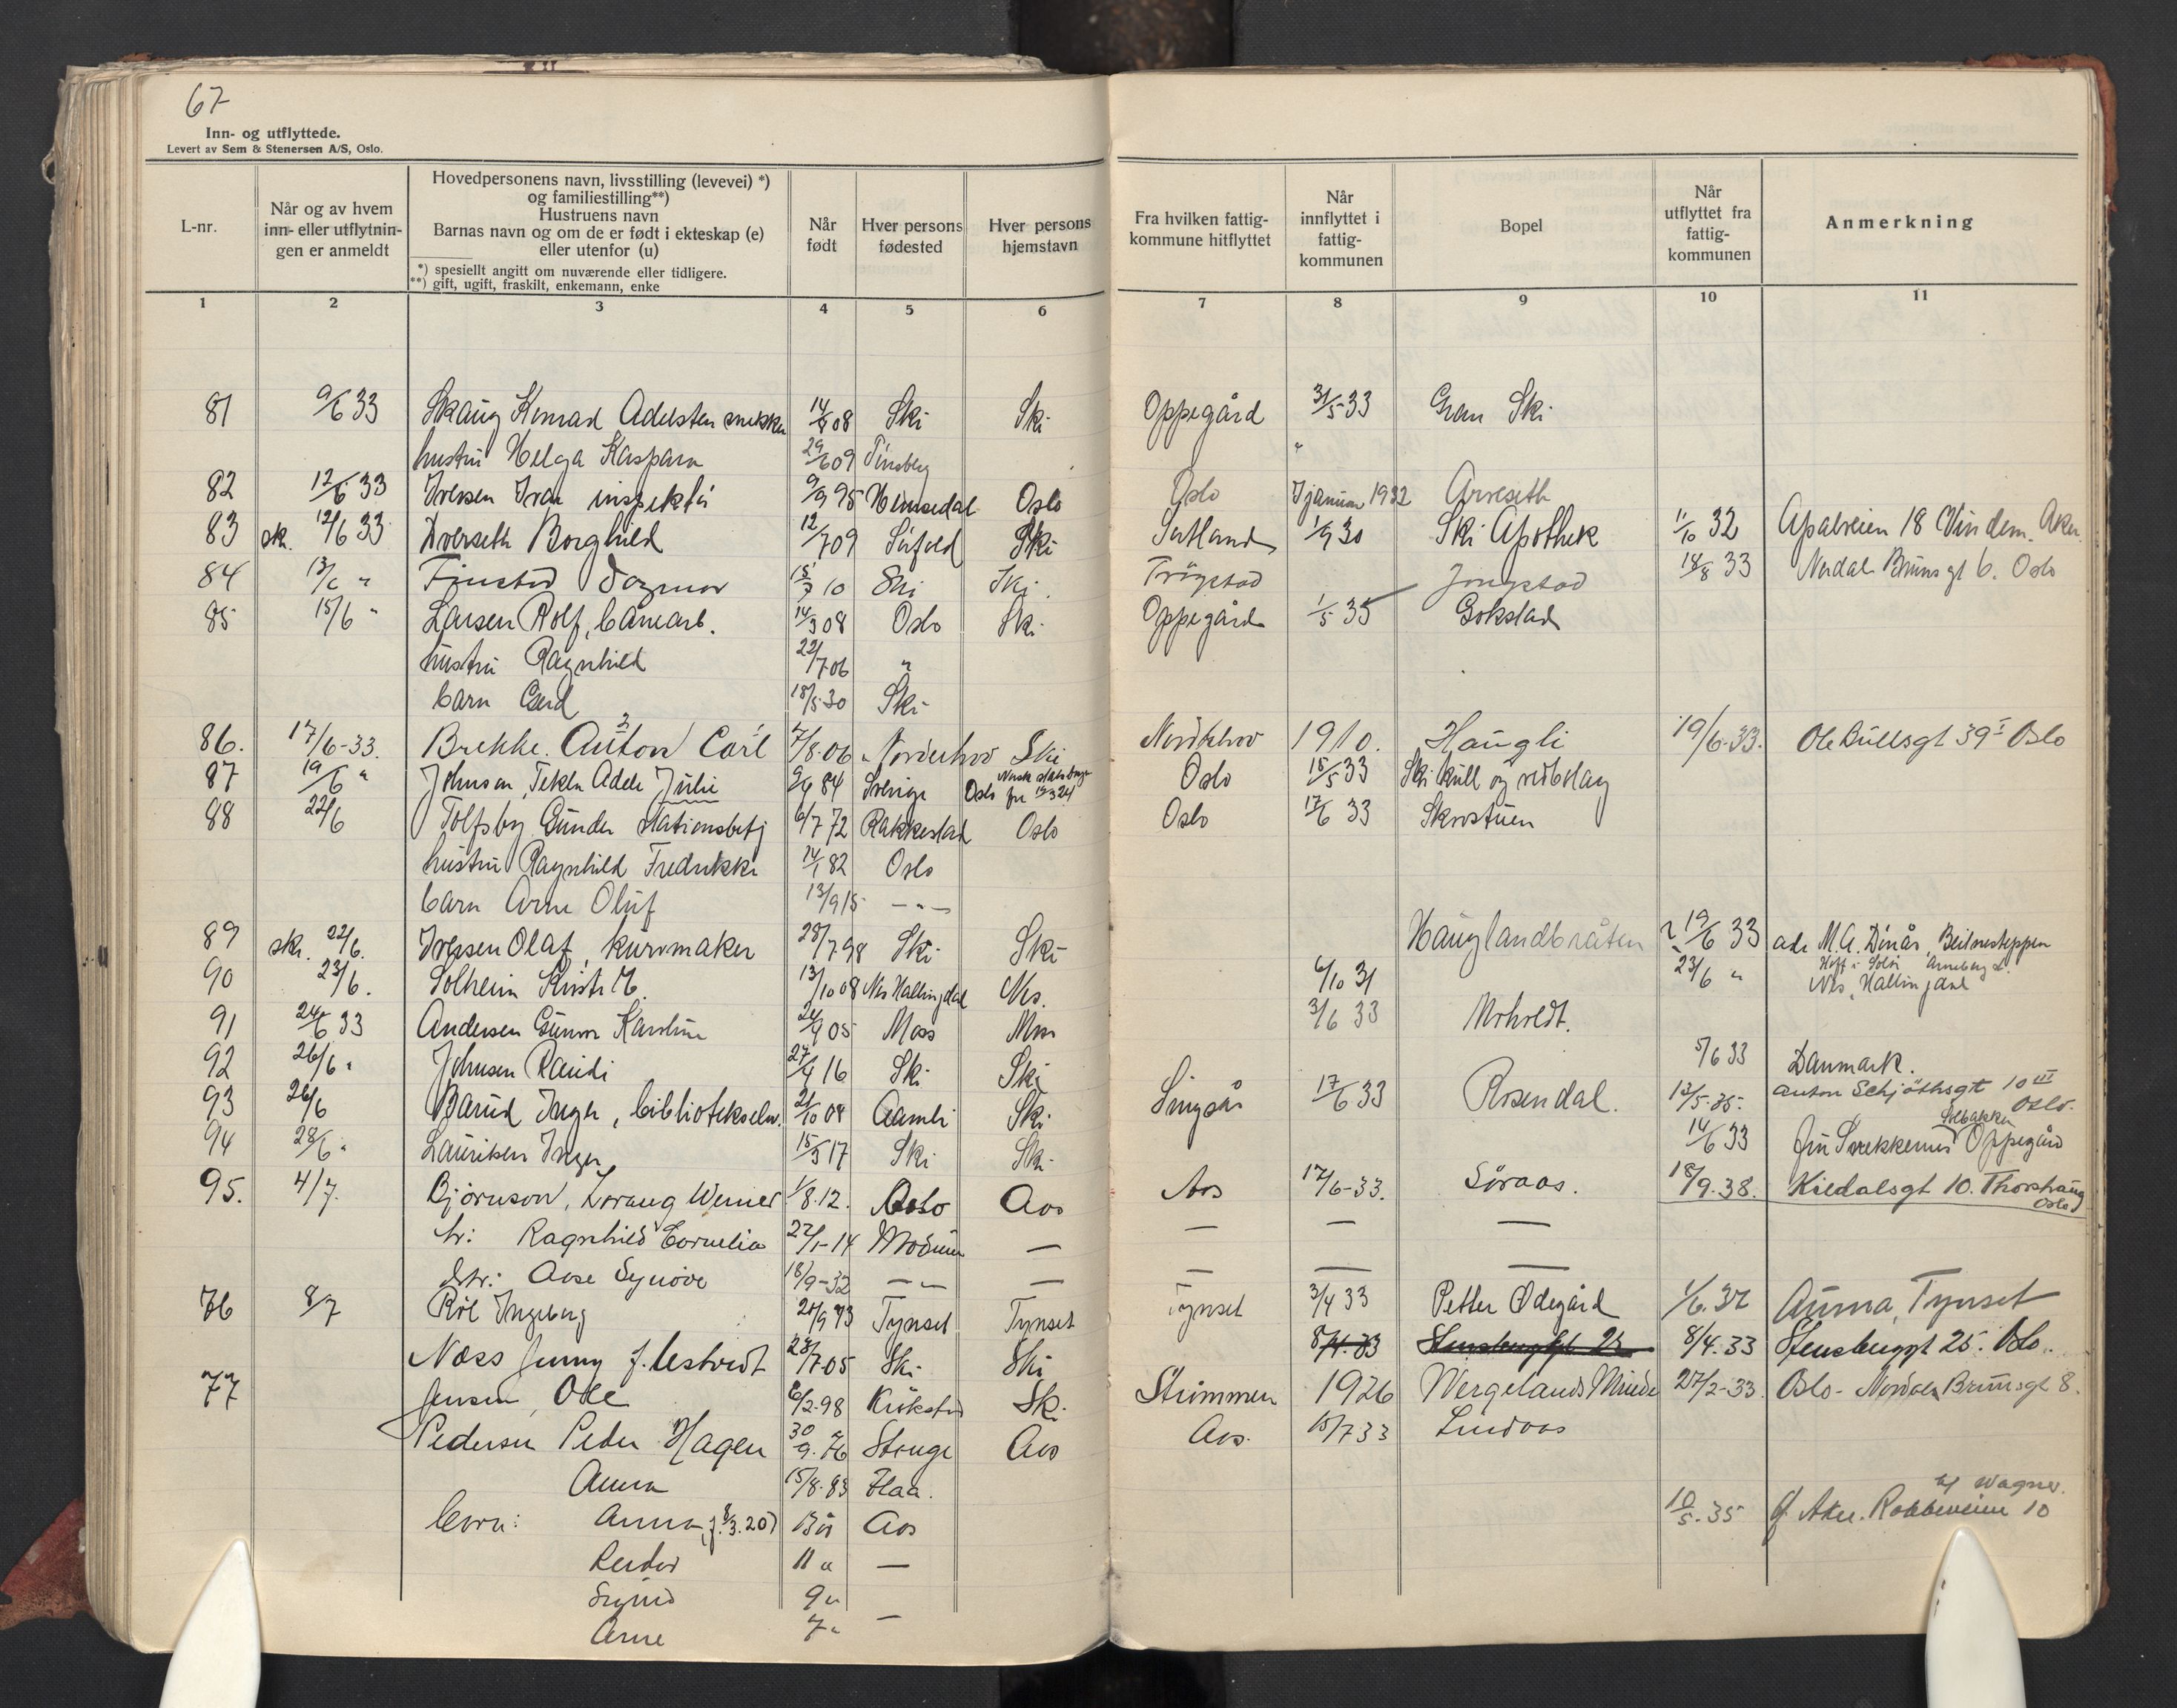 67
Inn- og utflyttede.
Levert av Sem & Stenersen A/S, Oslo.
L-nr.
Når og av hvem inn- eller utflytnin- gen er anmeldt
Hovedpersonens navn, livsstilling (levevei) *) og familiestilling**) Hustruens navn Barnas navn og om de er født i ekteskap (e) eller utenfor (u)
*) spesiellt angitt om nuværende eller tidligere.
**) gift, ugift, fraskilt, enkemann, enke
Når født
Hver persons fødested
Hver persons hjemstavn
Fra hvilken fattig- kommune hitflyttet
Når innflyttet i fattig- kommunen
Bopel
Når utflyttet fra fattig- kommunen
Anmerkning
1 2 3 4 5 6 7 8 9 10 11
81 9/6 33 Skaug Konrad Adelsten snekker 14/8 08 Ski Ski Oppegård 31/5 33 Gran Ski
hustru Helga Kaspara 29/6 09 Tønsberg "
82 12/6 33 Iversen Ivar inspektør 9/9 95 Hemsedal Oslo Oslo I januar 1932 Arveseth
83 sk. 12/6 33 Dverseth Borghild 12/7 09 Sørfold Ski 1/9 30 Ski Apothek 1/10 32 Apalveien 18 Vindern. Aker
84 13/6 " Finstad Dagmar 15/7 10 Ski Ski. Trøgstad Jongstad 14/8 33 Nordal Bruns gt 6. Oslo
85 15/6 " Larsen Rolf, banearb. 14/3 08 Oslo Ski Oppegård 1/5 35 Gokstad
hustru Ragnhild 22/7 06 "
barn Gerd 18/5 30 Ski
86. 17/6-33. Brekke. Anton Carl 7/8-06 Norderhov Ski Norderhov 1910. Haugli 19/6-33. Ole Bullsgt 39 I Oslo
87 19/6 " Johnson, Tekla Adele Julie 9/4 84 Sverige Norsk statsborger Oslo fra 19/3 24 Oslo 15/5 33 Ski kull og vedbolag
88 22/6 Tolfsby Gunder stationsbetj 6/7 72 Rakkestad Oslo Oslo 17/6 33 Skrostuen
hustru Ragnhild Fredrikke 14/1 82 Oslo
barn Arne Oluf 13/9 15 - " -
89 sk. 22/6. Iversen Olaf, kurvmaker 28/7 98 Ski Ski Hauglandbråten 19/6 33 adr M.A. Dinås, Beilnesteppen
Hoff i Solør Arneberg
90 23/6. Solheim Kristi M. 13/10 08 Nes Hallingdal Nes. 6/10 31 23/6 " Nes, Hallingdal
91 24/6 33 Andersen Gunvor Karoline 24/9 05 Moss Moss 3/6 33 Moholdt.
92 26/6 " Johnsen Randi 27/4 16 Ski Ski 5/6 33 Danmark.
93 26/6 Barud Inger, biblioteksele. 21/10 08 Aamli Ski Singsås 17/6 33 Rosendal. 12/5-35. Anton Schjöthsgt 10 III Oslo.
94 28/6 " Lauritsen Inger 15/3 17 Ski Ski 14/6 33 Fru Svekkerud Solbakken Oppegård
95. 4/7. Bjørnson, Lorang Werner 1/8.12. Oslo Aas Aas 17/6-33. Søraas. 18/9.38. Kildalsgt 10. Thorshaug Oslo
h: Ragnhild Cornelia 27/1-14 Modum — — — —
dtr: Aase Synøve 18/9-32 — " — — — —
76 8/7 Røe Ingeborg 20/9 93 Tynset Tynset Tynset 3/4 33 Petter Ødegård 1/6.34 Aumа, Tynset
Næss Jenny f. Uestvedt 23/7-05 Ski Ski 8/4.33 Stensberggt 25 8/4.33 Stensberggt 25. Oslo.
77 Jensen, Ole 6/2-98 Kråkstad Ski Strømmen 1926 Wergelands Minde 27/2-33. Oslo - Nordal Brunsgt 8.
Pedersen Peder Hagen 30/9.76 Stange Aas Aas. 15/7 33 Lindaas
Anna 15/8.83 Flaa.
barn: Anna (f. 8/3.20) 13 år Aas 10/5.35 Aker. Robbeveien 10 Wagner.
Reidar 11 " —
Sigurd 9 "
Arne 7 " —